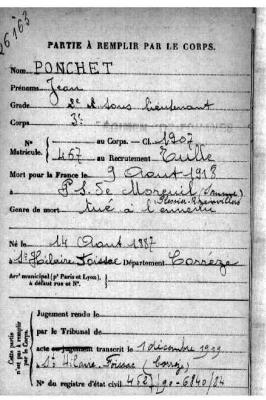 26163
PARTIE À REMPLIR PAR LE CORPS.
Nom PONCHET
Prénoms Jean
Grade 2e sous lieutenant
Corps 3e
N° Matricule. au Corps. — Cl. 1907
467 au Recrutement Tulle
Mort pour la France le 9 Aout 1918
à P.S. de Moreuil (Somme)
Genre de mort tué à l'ennemi
Né le 14 Aout 1887
à St Hilaire Foissac Département Corrèze
Arrt municipal (pr Paris et Lyon), à défaut rue et N°.
Cette partie n'est pas à remplir par le Corps.
Jugement rendu le
par le Tribunal de
acte ou jugement transcrit le 1 décembre 1919
à St Hilaire Foissac (Corrèze)
N° du registre d'état civil